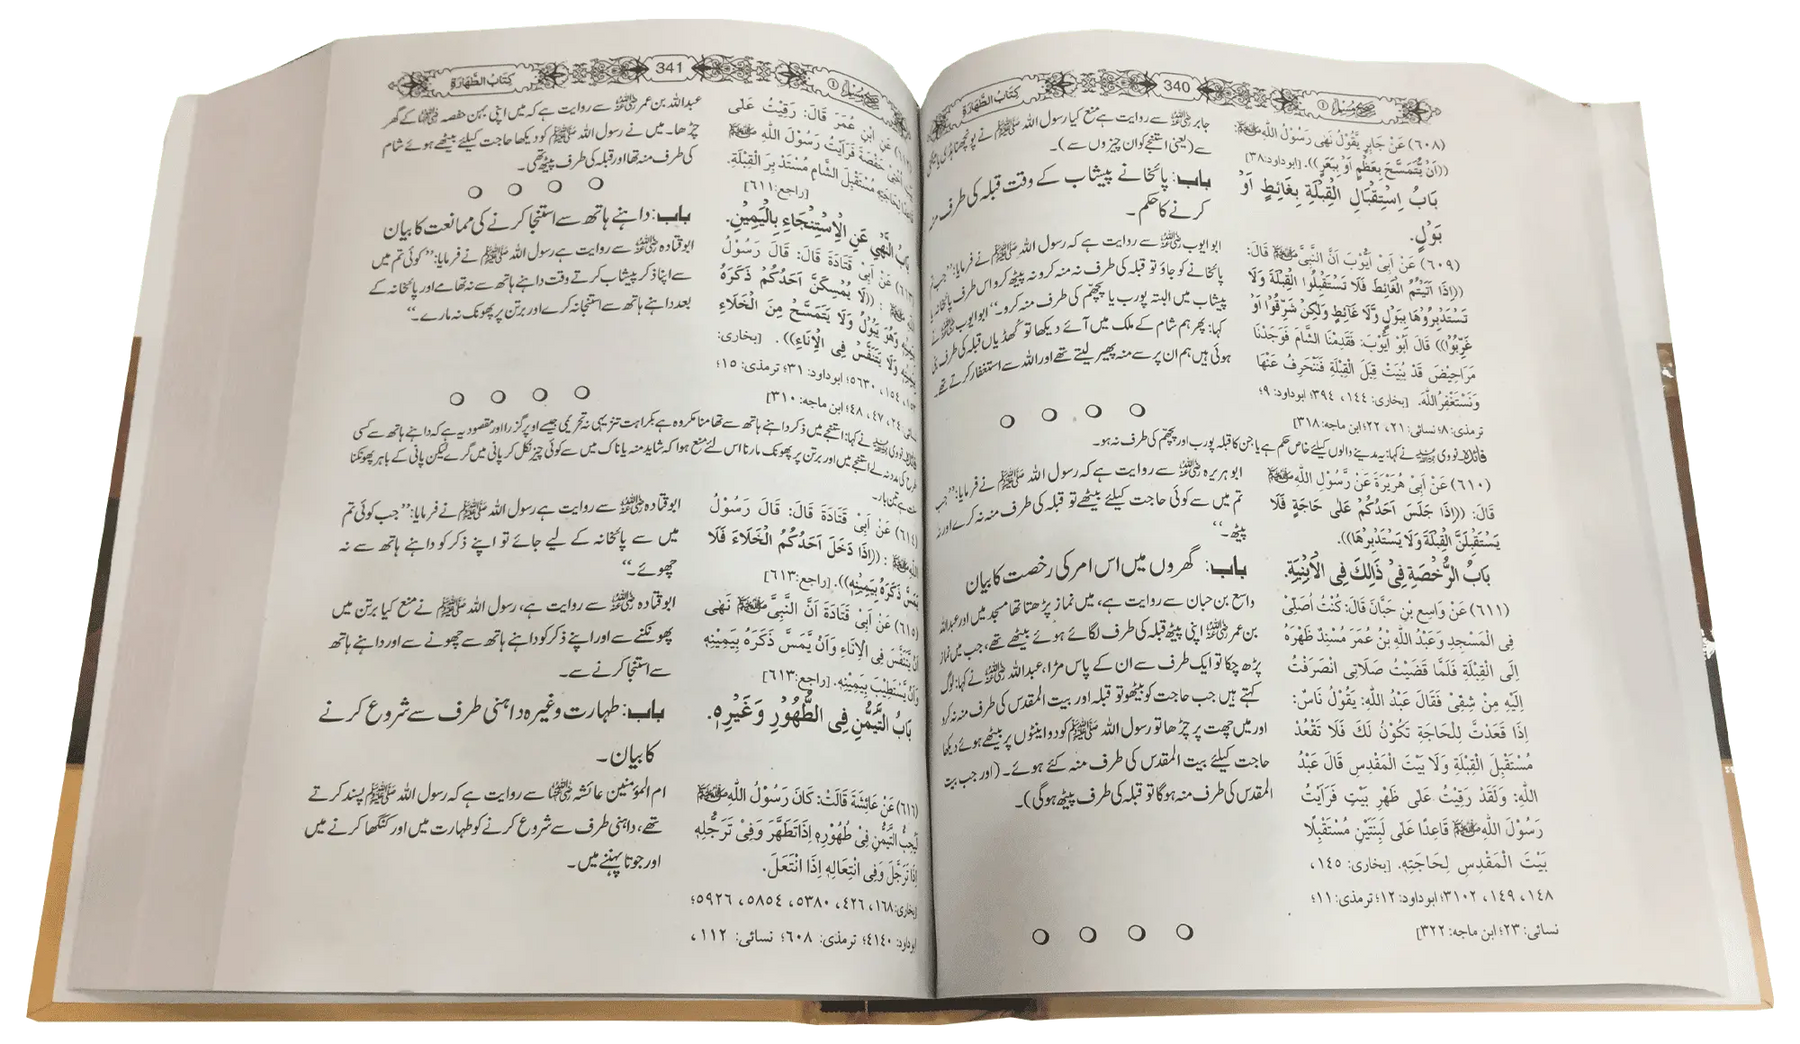 صحیح مسلم ①
340
کِتَابُ الطَّهَارَةِ
(٦٠٨) عَنْ جَابِرٍ يَّقُوْلُ نَهٰى رَسُوْلُ اللّٰهِ ﷺ:
((اَنْ يُّتَمَسَّحَ بِعَظْمٍ اَوْ بِبَعَرٍ)). [ابوداود:٣٨]
بَابُ اِسْتِقْبَالِ الْقِبْلَةِ بِغَائِطٍ اَوْ
بَوْلٍ.
(٦٠٩) عَنْ اَبِىْ اَيُّوْبَ اَنَّ النَّبِىَّ ﷺ قَالَ:
((اِذَا اَتَيْتُمُ الْغَائِطَ فَلَا تَسْتَقْبِلُوا الْقِبْلَةَ وَلَا
تَسْتَدْبِرُوْهَا بِبَوْلٍ وَّلَا غَائِطٍ وَلٰكِنْ شَرِّقُوْا اَوْ
غَرِّبُوْا)) قَالَ اَبُوْ اَيُّوْبَ: فَقَدِمْنَا الشَّامَ فَوَجَدْنَا
مَرَاحِيْضَ قَدْ بُنِيَتْ قِبَلَ الْقِبْلَةِ فَنَنْحَرِفُ عَنْهَا
وَنَسْتَغْفِرُ اللّٰهَ. [بخاری: ١٤٤، ٣٩٤؛ ابوداود: ٩؛
ترمذی: ٨؛ نسائی: ٢١، ٢٢؛ ابن ماجه: ٣١٨]
جابر رضی اللہ عنہ سے روایت ہے منع کیا رسول اللہ ﷺ نے پونچھنا ہڈی یا مینگنی
سے (یعنی استنجے کو ان چیزوں سے)۔
باب: پائخانے پیشاب کے وقت قبلہ کی طرف منہ
کرنے کا حکم۔
ابو ایوب رضی اللہ عنہ سے روایت ہے کہ رسول اللہ ﷺ نے فرمایا: ’’جب تم
پائخانے کو جاؤ تو قبلہ کی طرف نہ منہ کرو نہ پیٹھ کرو اس طرف پائخانہ یا
پیشاب میں البتہ پورب یا پچھم کی طرف منہ کرو۔‘‘ ابو ایوب رضی اللہ عنہ نے
کہا: پھر ہم شام کے ملک میں آئے دیکھا تو کھڈیاں قبلہ کی طرف بنی
ہوئی ہیں ہم ان پر سے منہ پھیر لیتے تھے اور اللہ سے استغفار کرتے تھے۔
فائدہ: نووی رحمہ اللہ نے کہا: یہ مدینے والوں کیلئے خاص حکم ہے یا جن کا قبلہ پورب اور پچھم کی طرف نہ ہو۔
(٦١٠) عَنْ اَبِىْ هُرَيْرَةَ عَنْ رَّسُوْلِ اللّٰهِ ﷺ
قَالَ: ((اِذَا جَلَسَ اَحَدُكُمْ عَلٰى حَاجَةٍ فَلَا
يَسْتَقْبِلَنَّ الْقِبْلَةَ وَلَا يَسْتَدْبِرْهَا)).
بَابُ الرُّخْصَةِ فِىْ ذَالِكَ فِى الْاَبْنِيَةِ.
(٦١١) عَنْ وَاسِعِ بْنِ حَبَّانَ قَالَ: كُنْتُ اُصَلِّىْ
فِى الْمَسْجِدِ وَعَبْدُ اللّٰهِ بْنُ عُمَرَ مُسْنِدٌ ظَهْرَهُ
اِلَى الْقِبْلَةِ فَلَمَّا قَضَيْتُ صَلَاتِى انْصَرَفْتُ
اِلَيْهِ مِنْ شِقِّىْ فَقَالَ عَبْدُ اللّٰهِ: يَقُوْلُ نَاسٌ:
اِذَا قَعَدْتَّ لِلْحَاجَةِ تَكُوْنُ لَكَ فَلَا تَقْعُدْ
مُسْتَقْبِلَ الْقِبْلَةِ وَلَا بَيْتَ الْمَقْدِسِ قَالَ عَبْدُ
اللّٰهِ: وَلَقَدْ رَقِيْتُ عَلٰى ظَهْرِ بَيْتٍ فَرَاَيْتُ
رَسُوْلَ اللّٰهِ ﷺ قَاعِدًا عَلٰى لَبِنَتَيْنِ مُسْتَقْبِلًا
بَيْتَ الْمَقْدِسِ لِحَاجَتِهٖ. [بخاری: ١٤٥،
١٤٨، ١٤٩، ٣١٠٢؛ ابوداود: ١٢؛ ترمذی: ١١؛
نسائی: ٢٣؛ ابن ماجه: ٣٢٢]
ابو ہریرہ رضی اللہ عنہ سے روایت ہے کہ رسول اللہ ﷺ نے فرمایا: ’’جب
تم میں سے کوئی حاجت کیلئے بیٹھے تو قبلہ کی طرف منہ نہ کرے اور نہ
پیٹھ۔‘‘
باب: گھروں میں اس امر کی رخصت کا بیان
واسع بن حبان سے روایت ہے، میں نماز پڑھتا تھا مسجد میں اور عبداللہ
بن عمر رضی اللہ عنہ اپنی پیٹھ قبلہ کی طرف لگائے ہوئے بیٹھے تھے، جب میں نماز
پڑھ چکا تو ایک طرف سے ان کے پاس مڑا، عبداللہ رضی اللہ عنہ نے کہا: لوگ
کہتے ہیں جب حاجت کو بیٹھو تو قبلہ اور بیت المقدس کی طرف منہ نہ کرو
اور میں چھت پر چڑھا تو رسول اللہ ﷺ کو دو اینٹوں پر بیٹھے ہوئے دیکھا
حاجت کیلئے بیت المقدس کی طرف منہ کئے ہوئے۔ (اور جب بیت
المقدس کی طرف منہ ہوگا تو قبلہ کی طرف پیٹھ ہوگی)۔
صحیح مسلم ①
341
کِتَابُ الطَّهَارَةِ
ابْنِ عُمَرَ قَالَ: رَقِيْتُ عَلٰى
حَفْصَةَ فَرَاَيْتُ رَسُوْلَ اللّٰهِ ﷺ
لِحَاجَتِهٖ مُسْتَقْبِلَ الشَّامِ مُسْتَدْبِرَ الْقِبْلَةِ.
[راجع:٦١١]
بَابُ النَّهْىِ عَنِ الْاِسْتِنْجَاءِ بِالْيَمِيْنِ.
(٦١٣) عَنْ اَبِىْ قَتَادَةَ قَالَ: قَالَ رَسُوْلُ
اللّٰهِ ﷺ: ((لَا يُمْسِكَنَّ اَحَدُكُمْ ذَكَرَهُ
بِيَمِيْنِهٖ وَهُوَ يَبُوْلُ وَلَا يَتَمَسَّحْ مِنَ الْخَلَاءِ
بِيَمِيْنِهٖ وَلَا يَتَنَفَّسْ فِى الْاِنَاءِ)). [بخاری:
١٥٣، ١٥٤، ٥٦٣٠؛ ابوداود: ٣١؛ ترمذی: ١٥؛
نسائی: ٢٤، ٤٧، ٤٨؛ ابن ماجه: ٣١٠]
عبداللہ بن عمر رضی اللہ عنہ سے روایت ہے کہ میں اپنی بہن حفصہ رضی اللہ عنہا کے گھر
چڑھا۔ میں نے رسول اللہ ﷺ کو دیکھا حاجت کیلئے بیٹھے ہوئے شام
کی طرف منہ تھا اور قبلہ کی طرف پیٹھ تھی۔
باب: داہنے ہاتھ سے استنجا کرنے کی ممانعت کا بیان
ابو قتادہ رضی اللہ عنہ سے روایت ہے رسول اللہ ﷺ نے فرمایا: ’’کوئی تم میں
سے اپنا ذکر پیشاب کرتے وقت داہنے ہاتھ سے نہ تھامے اور پائخانہ کے
بعد داہنے ہاتھ سے استنجا نہ کرے اور برتن پر پھونک نہ مارے۔‘‘
فائدہ: نووی رحمہ اللہ نے کہا: استنجے میں ذکر داہنے ہاتھ سے تھامنا مکروہ ہے بکراہت تنزیہی نہ تحریمی جیسے اوپر گزرا اور مقصود یہ ہے کہ داہنے ہاتھ سے کسی
طرح کی مدد نہ لے استنجے میں اور برتن پر پھونک مارنا اس لئے منع ہوا کہ شاید منہ یا ناک میں سے کوئی چیز نکل کر پانی میں گرے لیکن پانی کے باہر پھونکنا
تین بار۔
(٦١٤) عَنْ اَبِىْ قَتَادَةَ قَالَ: قَالَ رَسُوْلُ
اللّٰهِ ﷺ: ((اِذَا دَخَلَ اَحَدُكُمُ الْخَلَاءَ فَلَا
يَمَسَّ ذَكَرَهُ بِيَمِيْنِهٖ)). [راجع:٦١٣]
(٦١٥) عَنْ اَبِىْ قَتَادَةَ اَنَّ النَّبِىَّ ﷺ نَهٰى
اَنْ يَّتَنَفَّسَ فِى الْاِنَاءِ وَاَنْ يَّمَسَّ ذَكَرَهُ بِيَمِيْنِهٖ
وَاَنْ يَّسْتَطِيْبَ بِيَمِيْنِهٖ. [راجع:٦١٣]
بَابُ التَّيَمُّنِ فِى الطُّهُوْرِ وَغَيْرِهٖ.
(٦١٦) عَنْ عَائِشَةَ قَالَتْ: كَانَ رَسُوْلُ اللّٰهِ ﷺ
لَيُحِبُّ التَّيَمُّنَ فِىْ طُهُوْرِهٖ اِذَا تَطَهَّرَ وَفِىْ تَرَجُّلِهٖ
اِذَا تَرَجَّلَ وَفِى انْتِعَالِهٖ اِذَا انْتَعَلَ.
[بخاری:١٦٨، ٤٢٦، ٥٣٨٠، ٥٨٥٤، ٥٩٢٦؛
ابوداود: ٤١٤٠؛ ترمذی: ٦٠٨؛ نسائی: ١١٢،
ابو قتادہ رضی اللہ عنہ سے روایت ہے رسول اللہ ﷺ نے فرمایا: ’’جب کوئی تم
میں سے پائخانہ کے لیے جائے تو اپنے ذکر کو داہنے ہاتھ سے نہ
چھوئے۔‘‘
ابو قتادہ رضی اللہ عنہ سے روایت ہے، رسول اللہ ﷺ نے منع کیا برتن میں
پھونکنے سے اور اپنے ذکر کو داہنے ہاتھ سے چھونے سے اور داہنے ہاتھ
سے استنجا کرنے سے۔
باب: طہارت وغیرہ داہنی طرف سے شروع کرنے
کا بیان۔
ام المؤمنین عائشہ رضی اللہ عنہا سے روایت ہے کہ رسول اللہ ﷺ پسند کرتے
تھے، داہنی طرف سے شروع کرنے کو طہارت میں اور کنگھا کرنے میں
اور جوتا پہننے میں۔